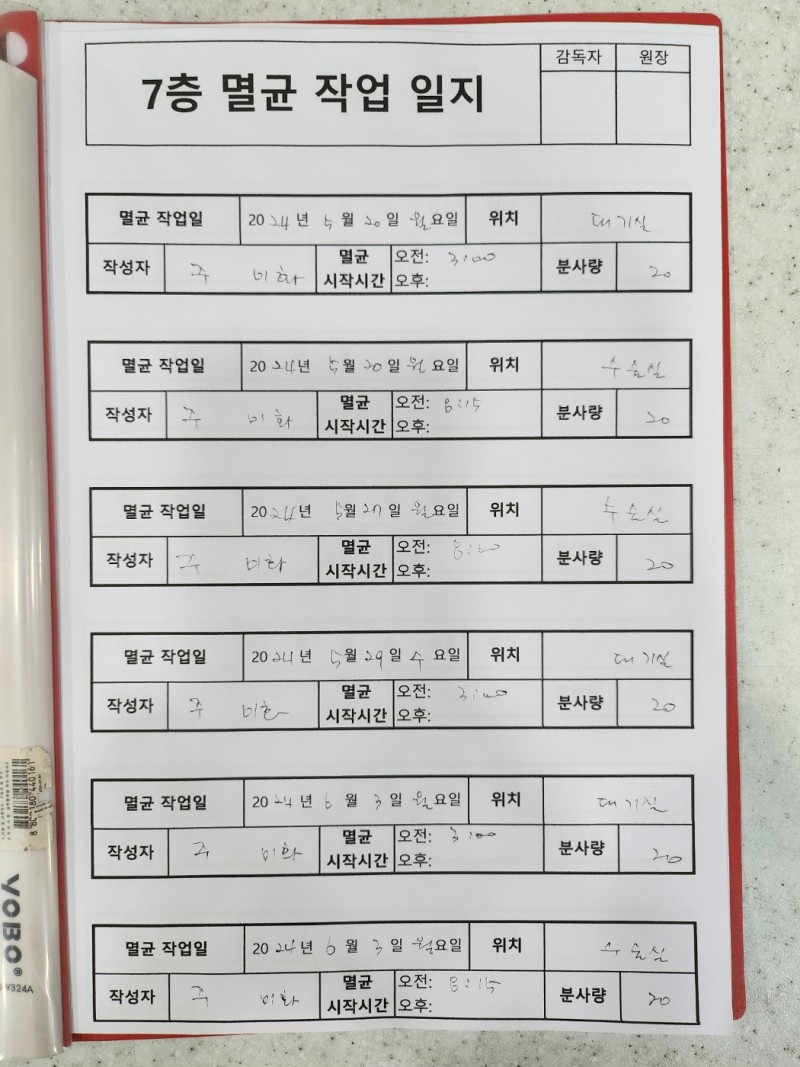 감독자 원장
7층 멸균 작업 일지
멸균 작업일 2024년 5월 20일 월요일 위치 대기실
작성자 주 미화 멸균 시작시간 오전: 3:00 오후: 분사량 20
멸균 작업일 2024년 5월 20일 월요일 위치 수술실
작성자 주 미화 멸균 시작시간 오전: 8:15 오후: 분사량 20
멸균 작업일 2024년 5월 27일 월요일 위치 수술실
작성자 주 미화 멸균 시작시간 오전: 8:20 오후: 분사량 20
멸균 작업일 2024년 5월 29일 수요일 위치 대기실
작성자 주 미화 멸균 시작시간 오전: 3:00 오후: 분사량 20
멸균 작업일 2024년 6월 3일 월요일 위치 대기실
작성자 주 미화 멸균 시작시간 오전: 3:00 오후: 분사량 20
멸균 작업일 2024년 6월 3일 월요일 위치 수술실
작성자 주 미화 멸균 시작시간 오전: 8:15 오후: 분사량 20
YOBO®